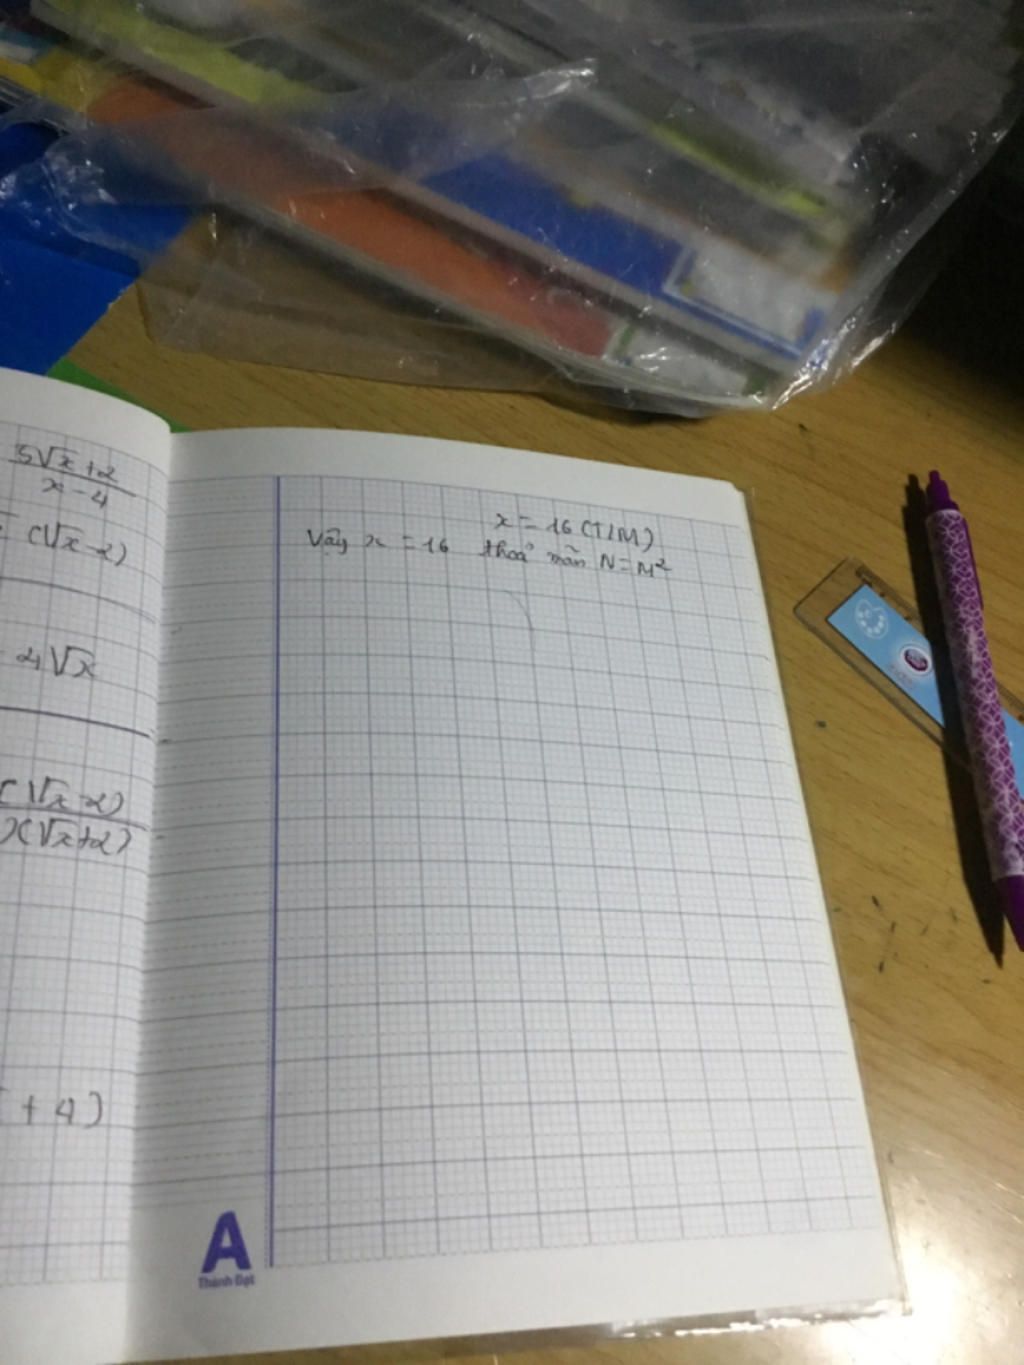 5√x + 2
x - 4
(√x - 2)
4√x
(√x - 2)
)(√x + 2)
+ 4)
x = 16 (T/M)
Vậy x = 16 thoả mãn N = M²
A
Thành Đạt